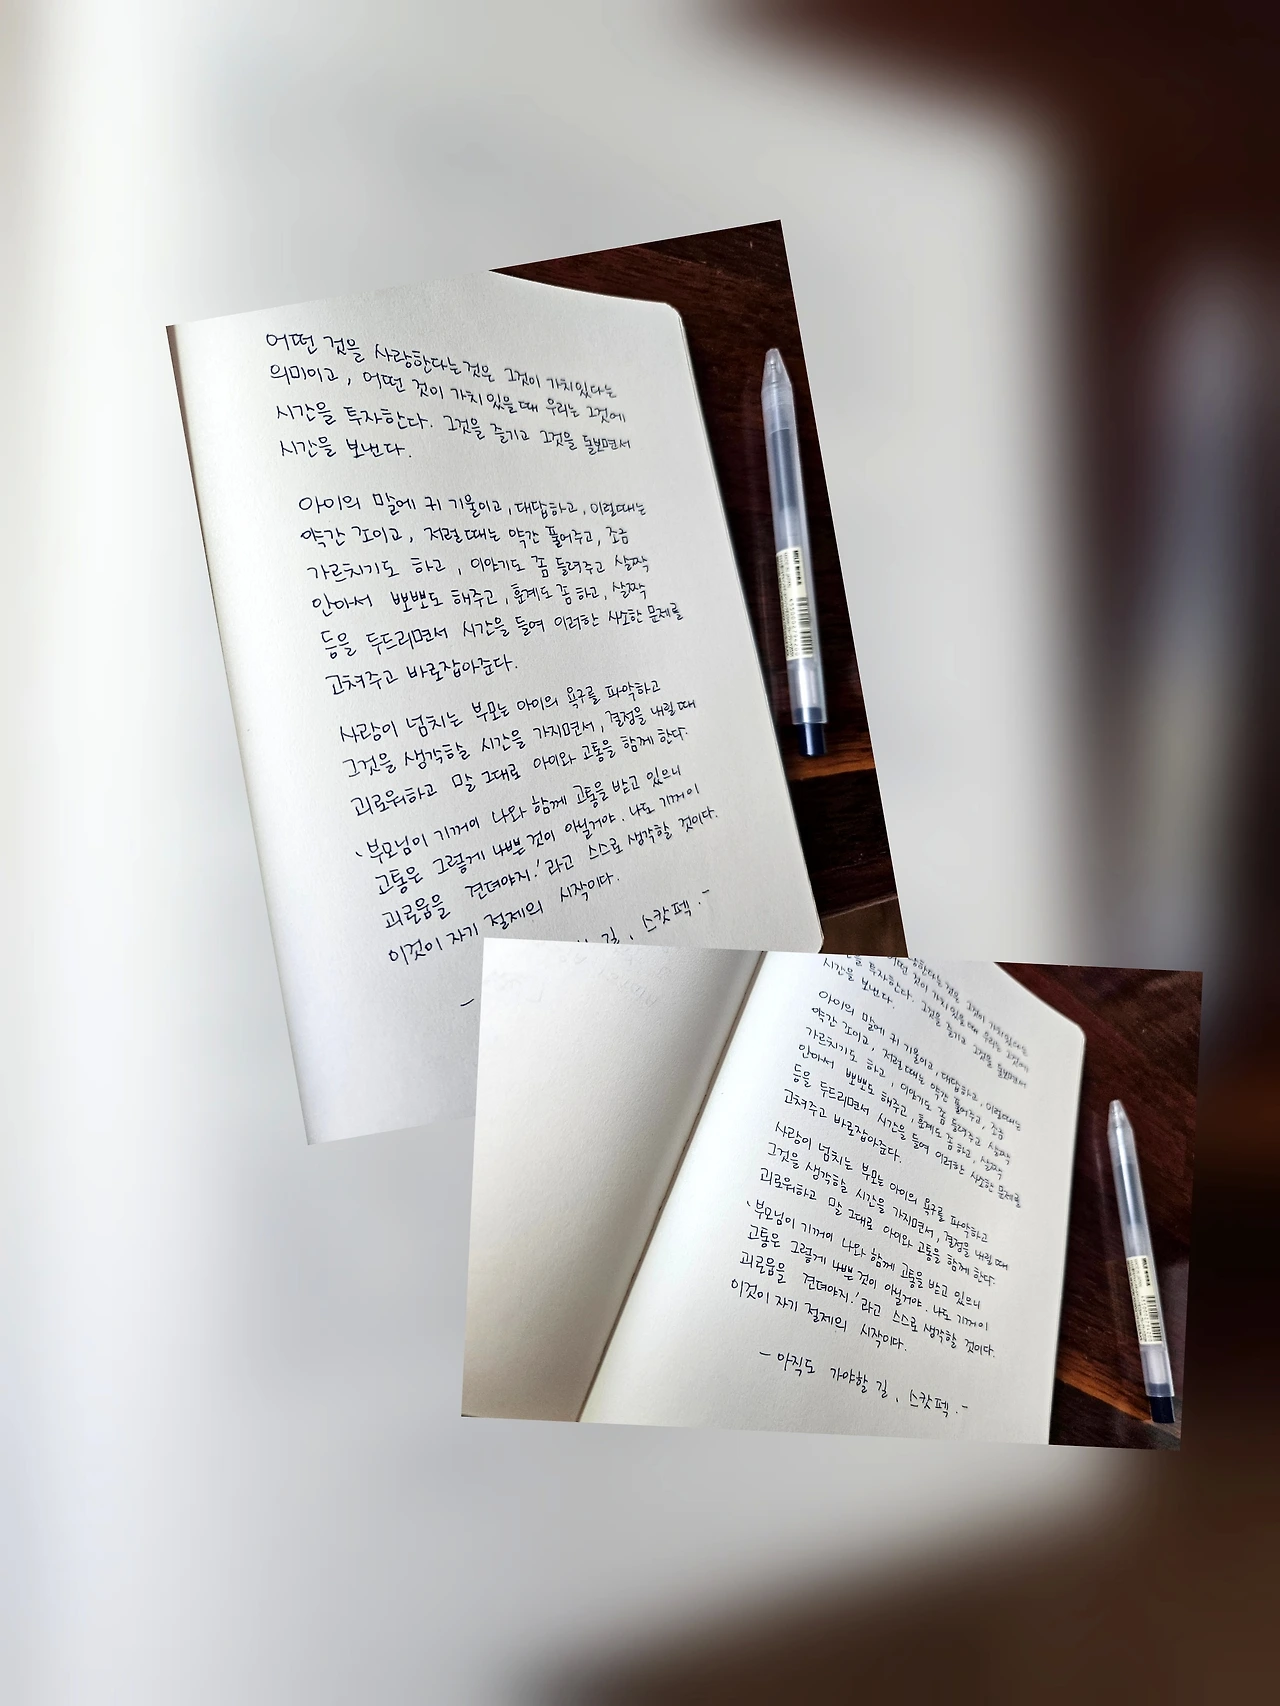 어떤 것을 사랑한다는 것은 그것이 가치있다는
의미이고, 어떤 것이 가치있을때 우리는 그것에
시간을 투자한다. 그것을 즐기고 그것을 돌보면서
시간을 보낸다.
아이의 말에 귀 기울이고, 대답하고, 이럴때는
약간 조이고, 저럴때는 약간 풀어주고, 조금
가르치기도 하고, 이야기도 좀 들려주고 살짝
안아서 뽀뽀도 해주고, 훈계도 좀 하고, 살짝
등을 두드리면서 시간을 들여 이러한 사소한 문제를
고쳐주고 바로잡아준다.
사랑이 넘치는 부모는 아이의 욕구를 파악하고
그것을 생각할 시간을 가지면서, 결정을 내릴때
괴로워하고 말 그대로 아이와 고통을 함께 한다.
'부모님이 기꺼이 나와 함께 고통을 받고 있으니
고통은 그렇게 나쁜 것이 아닐거야. 나도 기꺼이
괴로움을 견뎌야지.'라고 스스로 생각할 것이다.
이것이 자기 절제의 시작이다.
길, 스캇펙.-
시간을 보낸다.
아이의 말에 귀 기울이고, 대답하고, 이럴때는
약간 조이고, 저럴때는 약간 풀어주고, 조금
가르치기도 하고, 이야기도 좀 들려주고 살짝
안아서 뽀뽀도 해주고, 훈계도 좀 하고, 살짝
등을 두드리면서 시간을 들여 이러한 사소한 문제를
고쳐주고 바로잡아준다.
사랑이 넘치는 부모는 아이의 욕구를 파악하고
그것을 생각할 시간을 가지면서, 결정을 내릴때
괴로워하고 말 그대로 아이와 고통을 함께 한다.
'부모님이 기꺼이 나와 함께 고통을 받고 있으니
고통은 그렇게 나쁜 것이 아닐거야. 나도 기꺼이
괴로움을 견뎌야지.'라고 스스로 생각할 것이다.
이것이 자기 절제의 시작이다.
- 아직도 가야할 길, 스캇펙.-